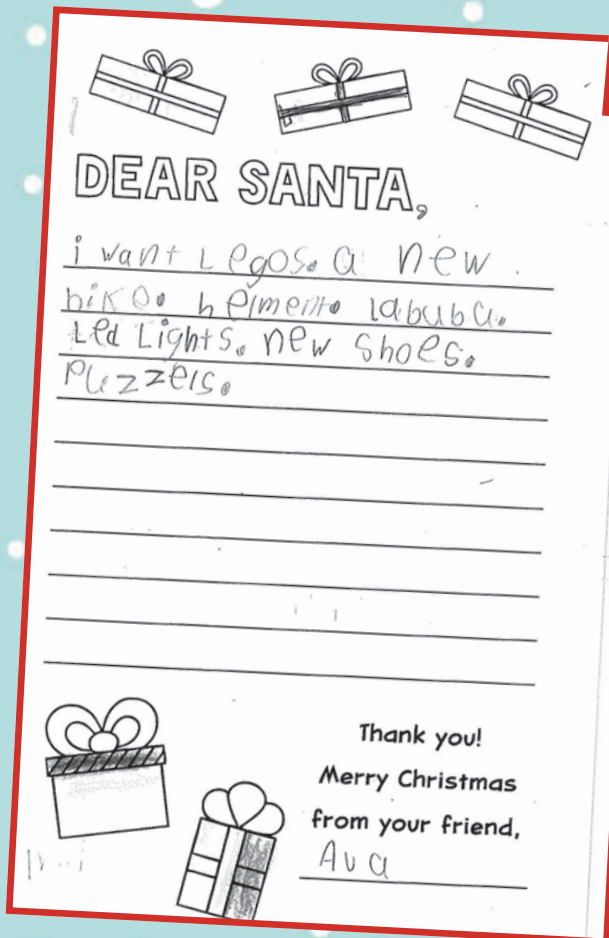 DEAR SANTA,
i want Legos. a new
bike. helment. labubu.
Led Lights. new shoes.
Puzzels.
Thank you!
Merry Christmas
from your friend,
Ava